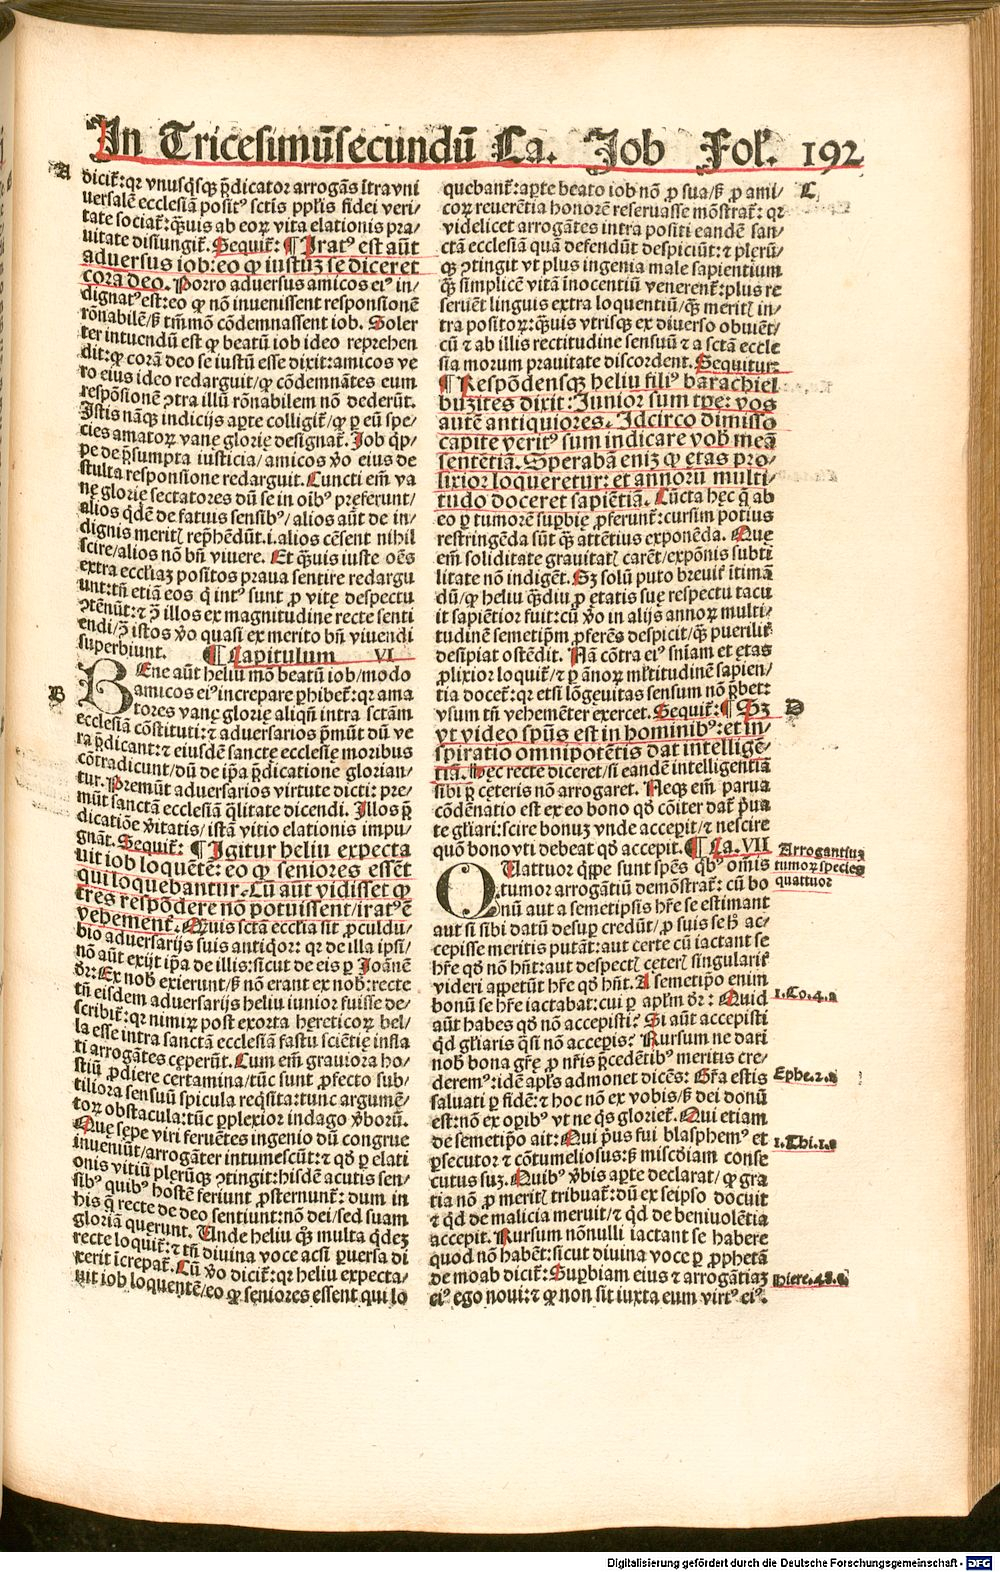 In Tricesimūsecundū Ca. Job Fol'. 192
A
dicit̄: qꝛ vnusq̄sq̄ p̄dicator arrogās ītra vni
uersalē ecclesiā posit⁹ sctīs ppl'is fidei veri/
tate sociat̄: q̄uis ab eoꝝ vita elationis pra/
uitate disiungit̄. Sequit̄: ¶ Irat⁹ est aūt
aduersus iob: eo ꝙ iustūꝫ se diceret
corā deo. Porro aduersus amicos ei⁹ in/
dignat⁹ est: eo ꝙ nō inuenissent responsionē
rōnabilē/ sꝫ tm̄mō cōdemnassent iob. Soler
ter intuendū est ꝙ beatū iob ideo reprehen
dit: ꝙ corā deo se iustū esse dixit: amicos ve
ro eius ideo redarguit/ ꝙ cōdemnātes eum
respōsionē ↄtra illū rōnabilem nō dederūt.
Istis nāqꝫ indicijs apte colligit̄/ ꝙ ꝑ eū spe/
cies amatoꝝ vanę glorię designat̄. Job q̄ꝑ/
pe de p̄sumpta iusticia/ amicos v̄o eius de
stulta responsione redarguit. Cuncti em̄ va
nę glorię sectatores dū se in oīb⁹ pręferunt/
alios q̄dē de fatuis sensib⁹/ alios aūt de in/
dignis meritꝭ rep̄hēdūt. i. alios cēsent nihil
scire/ alios nō bn̄ viuere. Et q̄uis iuste oēs
extra eccl'iaꝫ positos praua sentire redargu
unt: tn̄ etiā eos q̄ int⁹ sunt ꝓ vitę despectu
ↄtēnūt: ⁊ ↄ̄ illos ex magnitudine recte senti
endi/ ↄ̄ istos v̄o quasi ex merito bn̄ viuendi
superbiunt. ¶ Capitulum VI
B
BEne aūt heliu mō beatū iob/ modo
amicos ei⁹ increpare ꝑhibet̄: qꝛ ama
tores vanę glorię aliqn̄ intra sctām
ecclesiā cōstituti: ⁊ aduersarios p̄mūt dū ve
ra p̄dicant: ⁊ eiusdē sancte ecclesię moribus
cōtradicunt/ dū de ip̄a p̄dicatione glorian/
tur. Premūt aduersarios virtute dicti: pre/
mūt sanctā ecclesiā q̄litate dicendi. Illos ꝑ
dicatiōe v̄itatis/ istā vitio elationis impu/
gnāt. Sequit̄: ¶ Igitur heliu expecta
uit iob loquētē: eo ꝙ seniores essēt
qui loquebantur. Cū aūt vidisset ꝙ
tres respōdere nō potuissent/ irat⁹ ē
vehement̄. Quis sctā eccl'ia sit ꝓculdu/
bio aduersarijs suis antiq̄or: qꝛ de illa ipsi/
nō aūt exijt ip̄a de illis: sicut de eis ꝑ Joānē
dr̄: Ex nob̄ exierunt/ sꝫ nō erant ex nob̄: recte
tn̄ eisdem aduersarijs heliu iunior fuisse de/
scribit̄: qꝛ nimiꝝ post exorta hęreticoꝝ bel/
la esse intra sanctā ecclesiā fastu sciētię infla
ti arrogātes cęperūt. Cum em̄ grauiora ho/
stiū ꝓdiere certamina/ tūc sunt ꝓfecto sub/
tiliora sensuū spicula req̄sita: tunc argumē/
toꝝ obstacula: tūc ꝑplexior indago v̄boꝝ.
Quę sępe viri feruētes ingenio dū congrue
inueniūt/ arrogāter intumescūt: ⁊ qd̄ ꝑ elati
onis vitiū plerūqꝫ ↄtingit: hisdē acutis sen/
sib⁹ quib⁹ hostē feriunt ꝓsternunt̄: dum in
his q̄ recte de deo sentiunt: nō dei/ sed suam
gloriā querunt. Unde heliu q̄ꝫ multa q̄deꝫ
recte loquit̄: ⁊ tn̄ diuina voce acsi ꝑuersa di
xerit īcrepat̄. Cū v̄o dicit̄: qꝛ heliu expecta/
uit iob loquentē/ eo ꝙ seniores essent qui lo
C
quebant̄: apte beato iob nō ꝓ sua/ sꝫ ꝓ ami/
coꝝ reuerētia honorē reseruasse mōstrat̄: qꝛ
videlicet arrogātes intra positi eandē san/
ctā ecclesiā quā defendūt despiciūt: ⁊ plerū/
qꝫ ↄtingit vt plus ingenia male sapientium
q̄ꝫ simplicē vitā inocentiū venerent̄: plus re
seruēt linguis extra loquentiū/ q̄ꝫ meritꝭ in/
tra positoꝝ: q̄uis vtrisqꝫ ex diuerso obuiēt/
cū ⁊ ab illis rectitudine sensuū ⁊ a sctā eccle
sia morum prauitate discordent. Sequitur
¶ Respōdensqꝫ heliu fili⁹ barachiel
buzites dixit: Junior sum tpe: vos
autē antiquiores. Idcirco dimisso
capite verit⁹ sum indicare vob̄ meā
sentētiā. Sperabā eniꝫ ꝙ ętas pro/
lixior loqueretur: et annoꝝ multi/
tudo doceret sapiētiā. Cūcta hęc q̄ ab
eo ꝑ tumorē supbię ꝓferunt̄: cursim potius
restringēda sūt q̄ꝫ attētius exponēda. Quę
em̄ soliditate grauitatꝭ carēt/ expōnis subti
litate nō indigēt. Sꝫ solū puto breuit̄ ītimā
dū/ ꝙ heliu q̄ꝫdiu ꝓ etatis suę respectu tacu
it sapiētior fuit: cū v̄o in alijs annoꝝ multi/
tudinē semetip̄m ꝓferēs despicit/ q̄ꝫ puerilit̄
desipiat ostēdit. Nā cōtra ei⁹ sniam et ętas
ꝓlixior loquit̄/ ⁊ ꝑ ānoꝝ ml'titudinē sapien/
tia docet̄: qꝛ etsi lōgęuitas sensum nō p̄bet:
vsum tn̄ vehemēter exercet. Sequit̄: ¶ Sꝫ
D
vt video spūs est in hominib⁹: et in/
spiratio omnipotētis dat intelligē/
tiā. Hec recte diceret/ si eandē intelligentiā
sibi ꝑ cęteris nō arrogaret. Neqꝫ em̄ parua
cōdēnatio est ex eo bono qd̄ cōiter dat̄ p̄ua
te gl'iari: scire bonuꝫ vnde acceꝑit/ ⁊ nescire
quō bono vti debeat qd̄ accepit. ¶ Ca. VII
Arrogantiuꝫ
tumoꝝ species
quattuor
QUattuor q̄ppe sunt spēs q̄b⁹ om̄is
tumor arrogātiū demōstrat̄: cū bo
nū aut a semetipsis hr̄e se estimant
aut si sibi datū desuꝑ credūt/ ꝓ suis se h̄ ac/
cepisse meritis putāt: aut certe cū iactant se
hr̄e qd̄ nō hn̄t: aut despectꝭ ceterꝭ singularit̄
videri appetūt hr̄e qd̄ hn̄t. A semetip̄o enim
bonū se hr̄e iactabat: cui ꝑ apl'm dr̄: Quid
1. Co. 4. a
aūt habes qd̄ nō accepisti? Si aūt accepisti
q̄d gl'iaris q̄si nō acceꝑis? Rursum ne dari
nob̄ bona gr̄ę ꝓ nr̄is p̄cedētib⁹ meritis cre/
derem⁹: idē apl's admonet dicēs: Gr̄a estis
Ephe. 2. a
saluati ꝑ fidē: ⁊ hoc nō ex vobis/ sꝫ dei donū
est: nō ex oꝑib⁹ vt ne q̄s gloriet̄. Qui etiam
de semetip̄o ait: Qui p̄us fui blasphem⁹ et
1. Thi. 1. a
ꝑsecutor ⁊ cōtumeliosus: sꝫ misc̄diam conse
cutus suꝫ. Quib⁹ v̄bis apte declarat/ ꝙ gra
tia nō ꝓ meritꝭ tribuat̄: dū ex seipso docuit
⁊ q̄d de malicia meruit/ ⁊ q̄d de beniuolētia
accepit. Rursum nōnulli iactant se habere
quod nō habēt: sicut diuina voce ꝑ ꝓphetā
de moab dicit̄: Suꝑbiam eius ⁊ arrogātiaꝫ
Hiere. 48.
ei⁹ ego noui: ⁊ ꝙ non sit iuxta eum virt⁹ ei⁹.
Digitalisierung gefördert durch die Deutsche Forschungsgemeinschaft - DFG